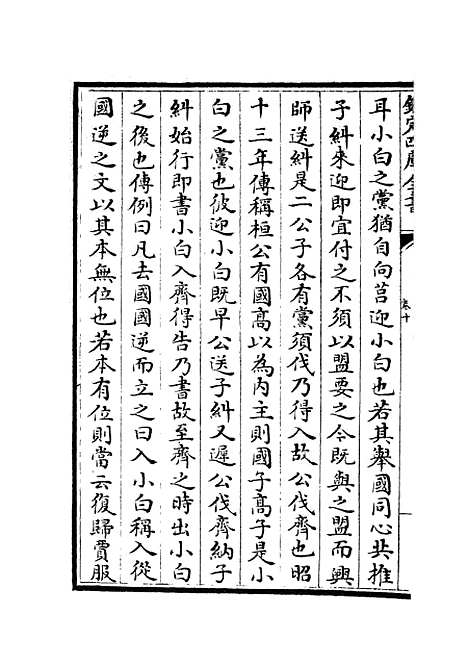 欽定四庫全書
卷十
耳小白之黨猶自向莒迎小白也若其舉國同心共推
子糾來迎即宜付之不須以盟要之今既與之盟而興
師送糾是二公子各有黨須伐乃得入故公伐齊也昭
十三年傳稱桓公有國高以為内主則國子高子是小
白之黨也彼迎小白既早公送子糾又遲公伐齊納子
糾始行即書小白入齊得告乃書故至齊之時出小白
之後也傳例曰凡去國國逆而立之曰入小白稱入從
國逆之文以其本無位也若本有位則當云復歸賈服